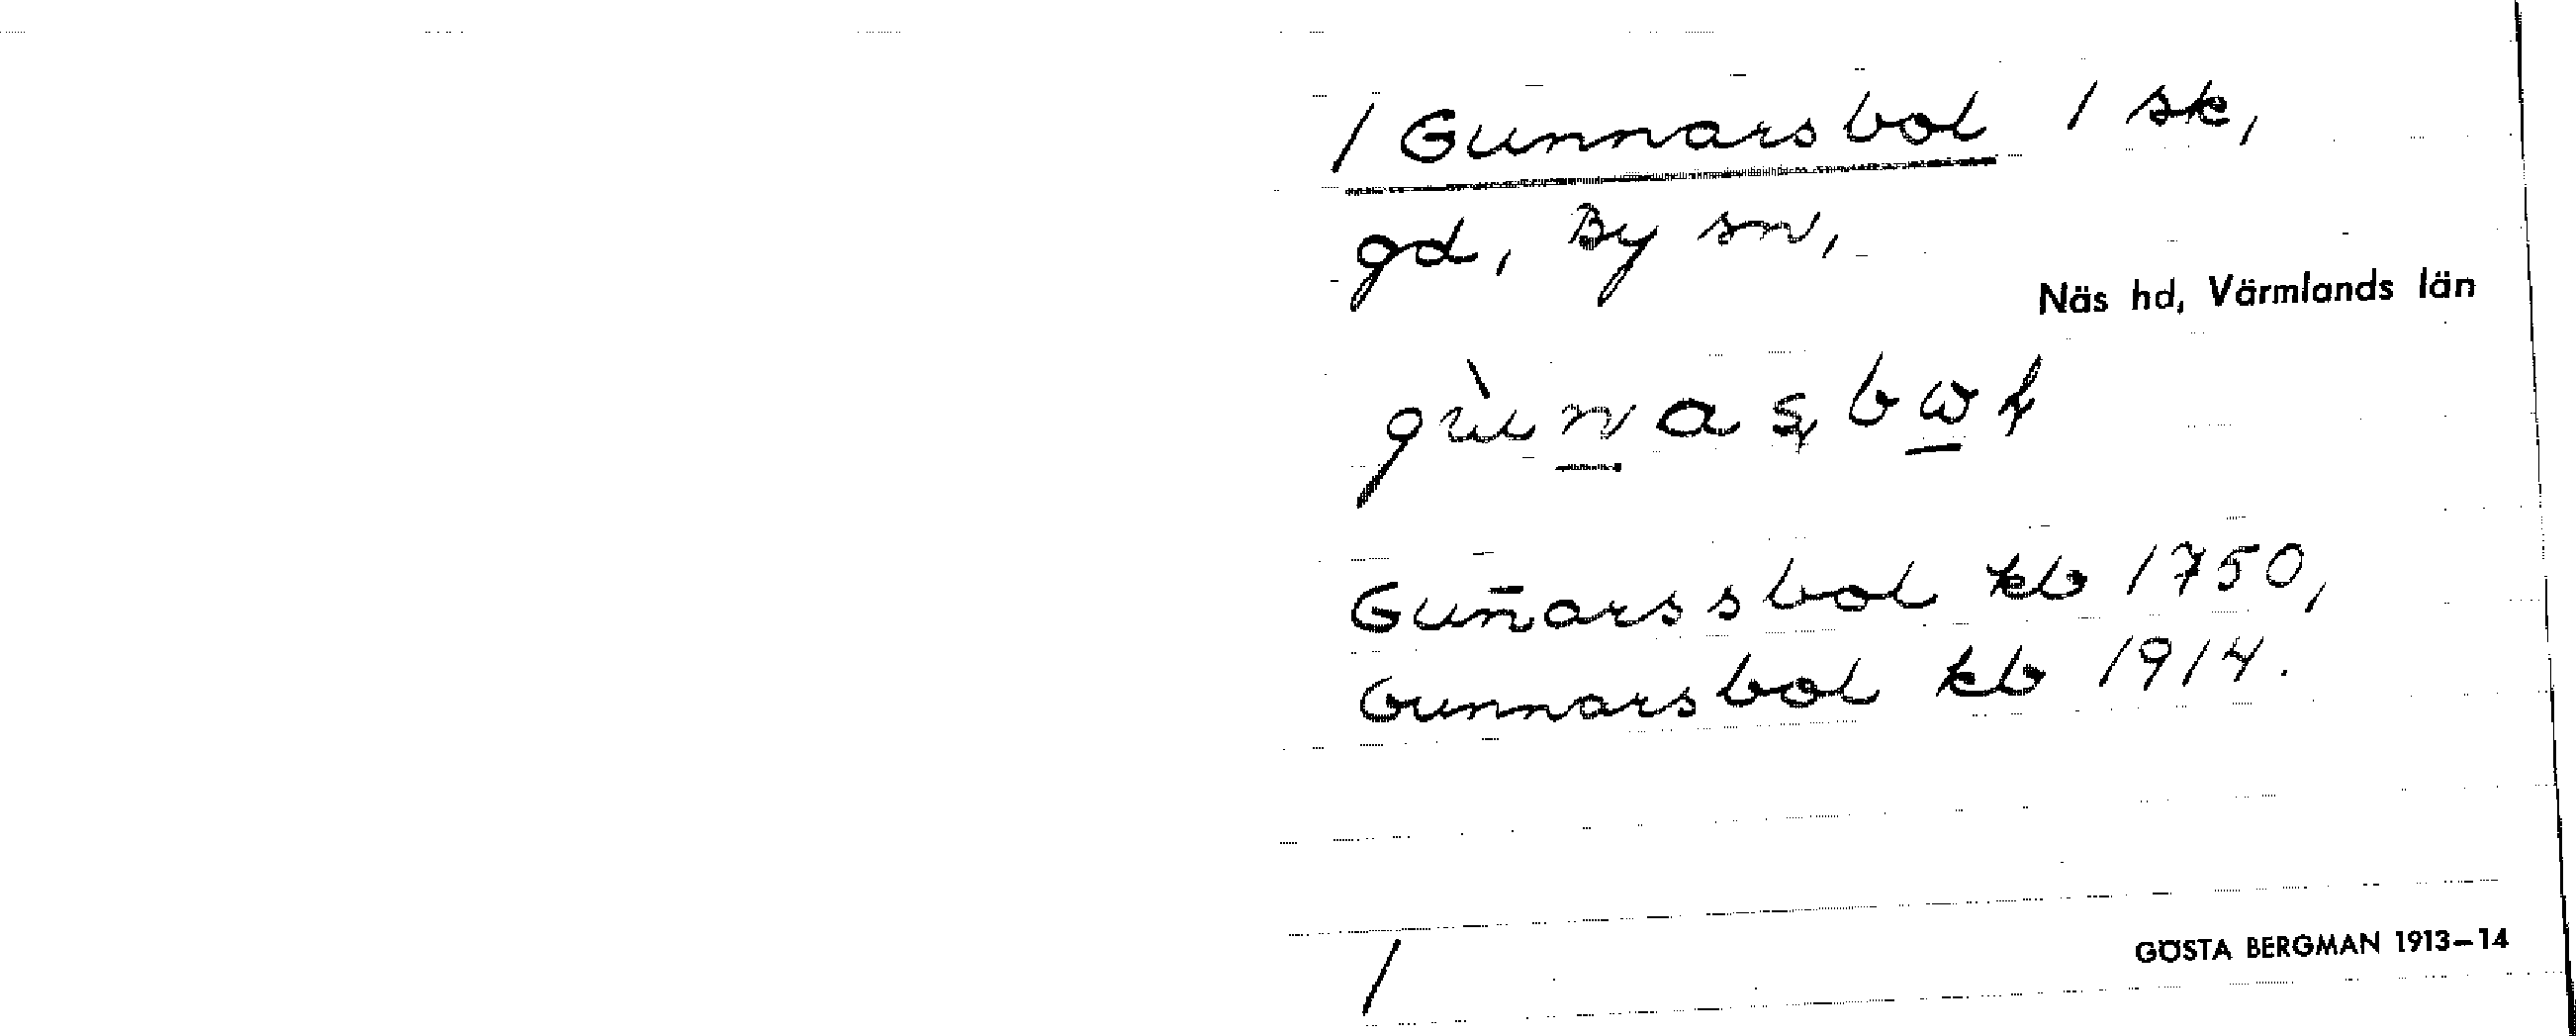 / Gunnarsbol / sk,
gd, By sn,
Näs hd, Värmlands län
Gun̄arssbol kb 1750,
Gunnarsbol kb 1914.
/
GÖSTA BERGMAN 1913–14